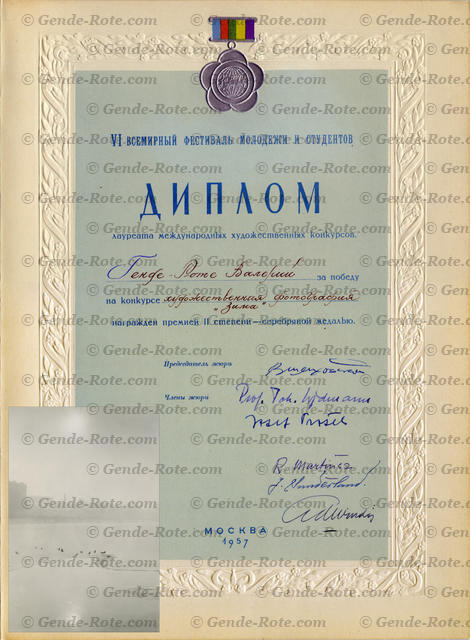 VI ВСЕМИРНЫЙ ФЕСТИВАЛЬ МОЛОДЕЖИ И СТУДЕНТОВ
ДИПЛОМ
лауреата международных художественных конкурсов.
Генде-Роте Валерий за победу
на конкурсе художественная фотография
"Зима"
награжден премией II степени — серебряной медалью.
Председатель жюри
Члены жюри
Prof.
R. Martinez
МОСКВА
1957
© Gende-Rote.com